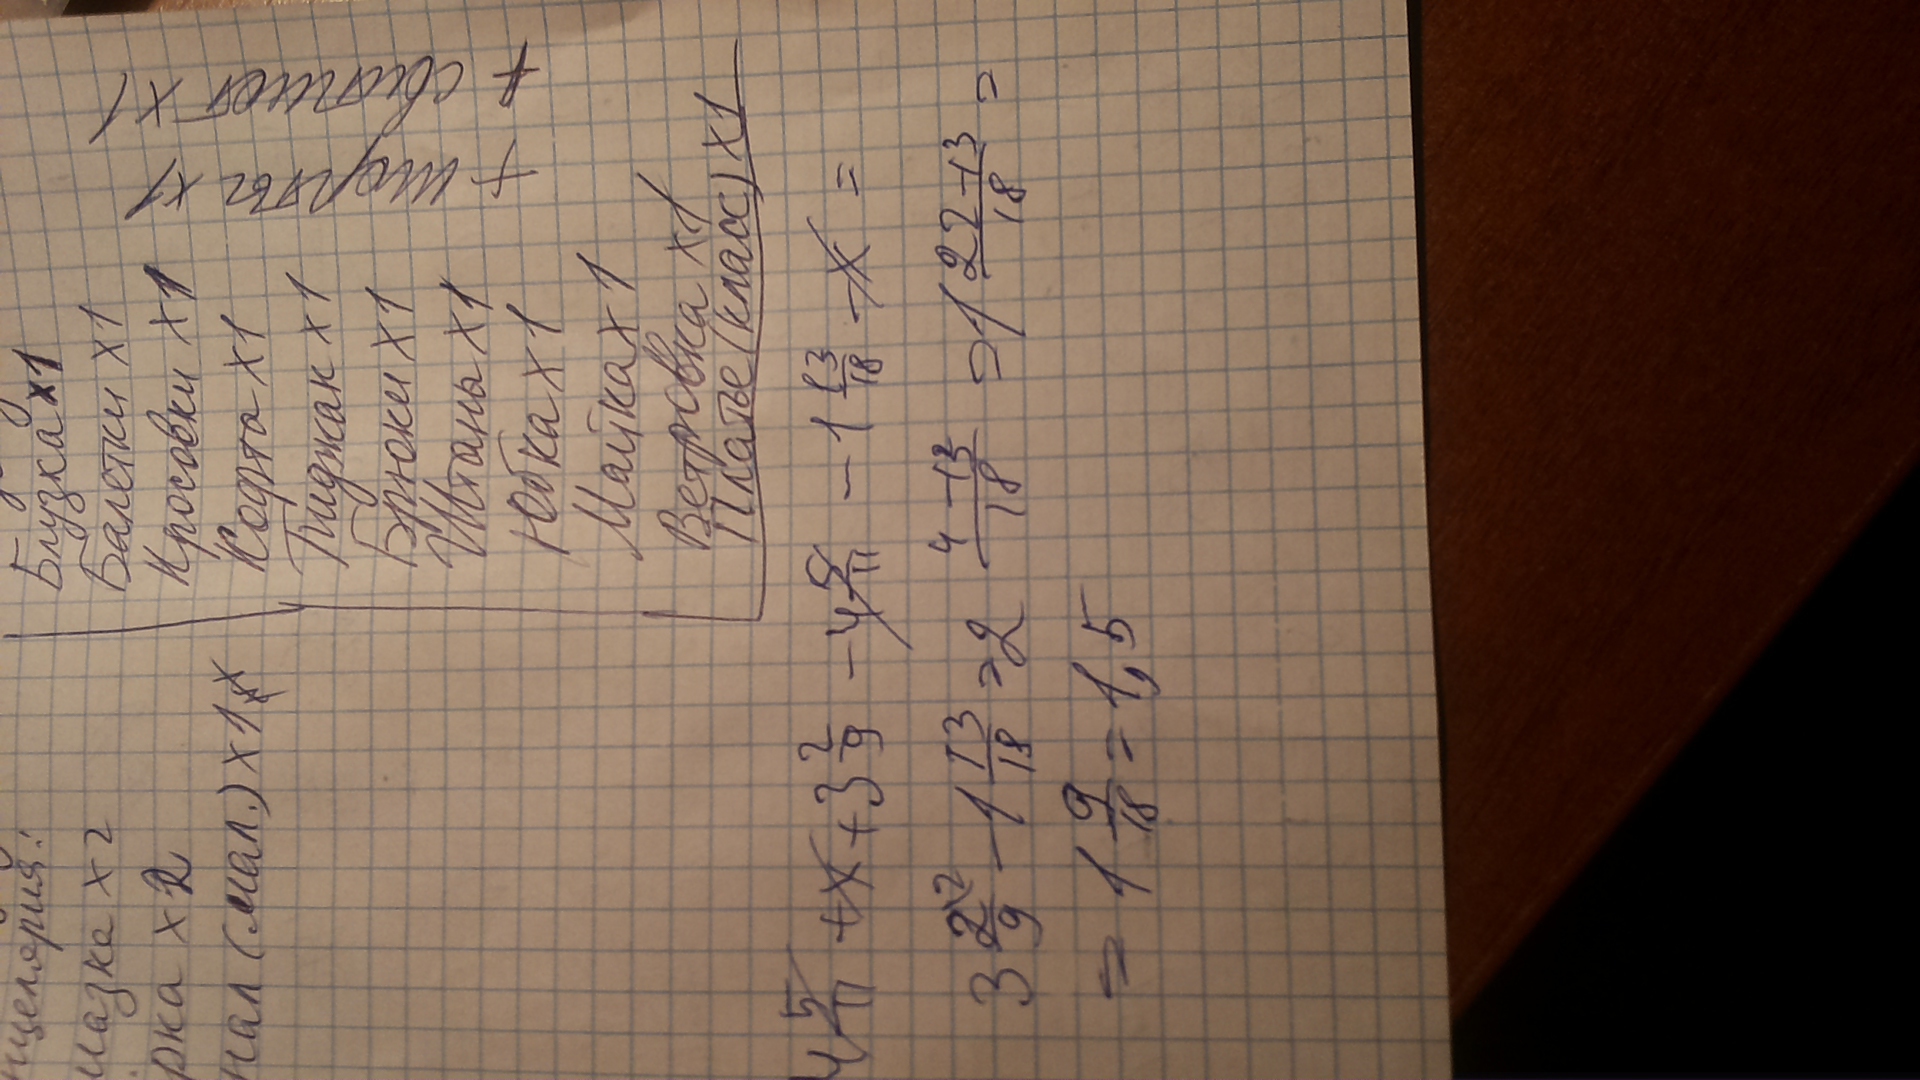 нцелярия:
мазка x2
рка x2
нал (мал.) x1
Блузка x1
Балетки x1
Кросовки x1
Кофта x1
Пиджак x1
Брюки x1
Штаны x1
Юбка x1
Майка x1
Ветровка x1
Платье (класс) x1
+ шорты x1
+ свитшот x1
4 5/11 + x + 3 2/9 - 4 5/11 - 1 13/18 - x =
3 2/9 - 1 13/18 = 2 4-13/18 = 1 22-13/18 =
= 1 9/18 = 1,5